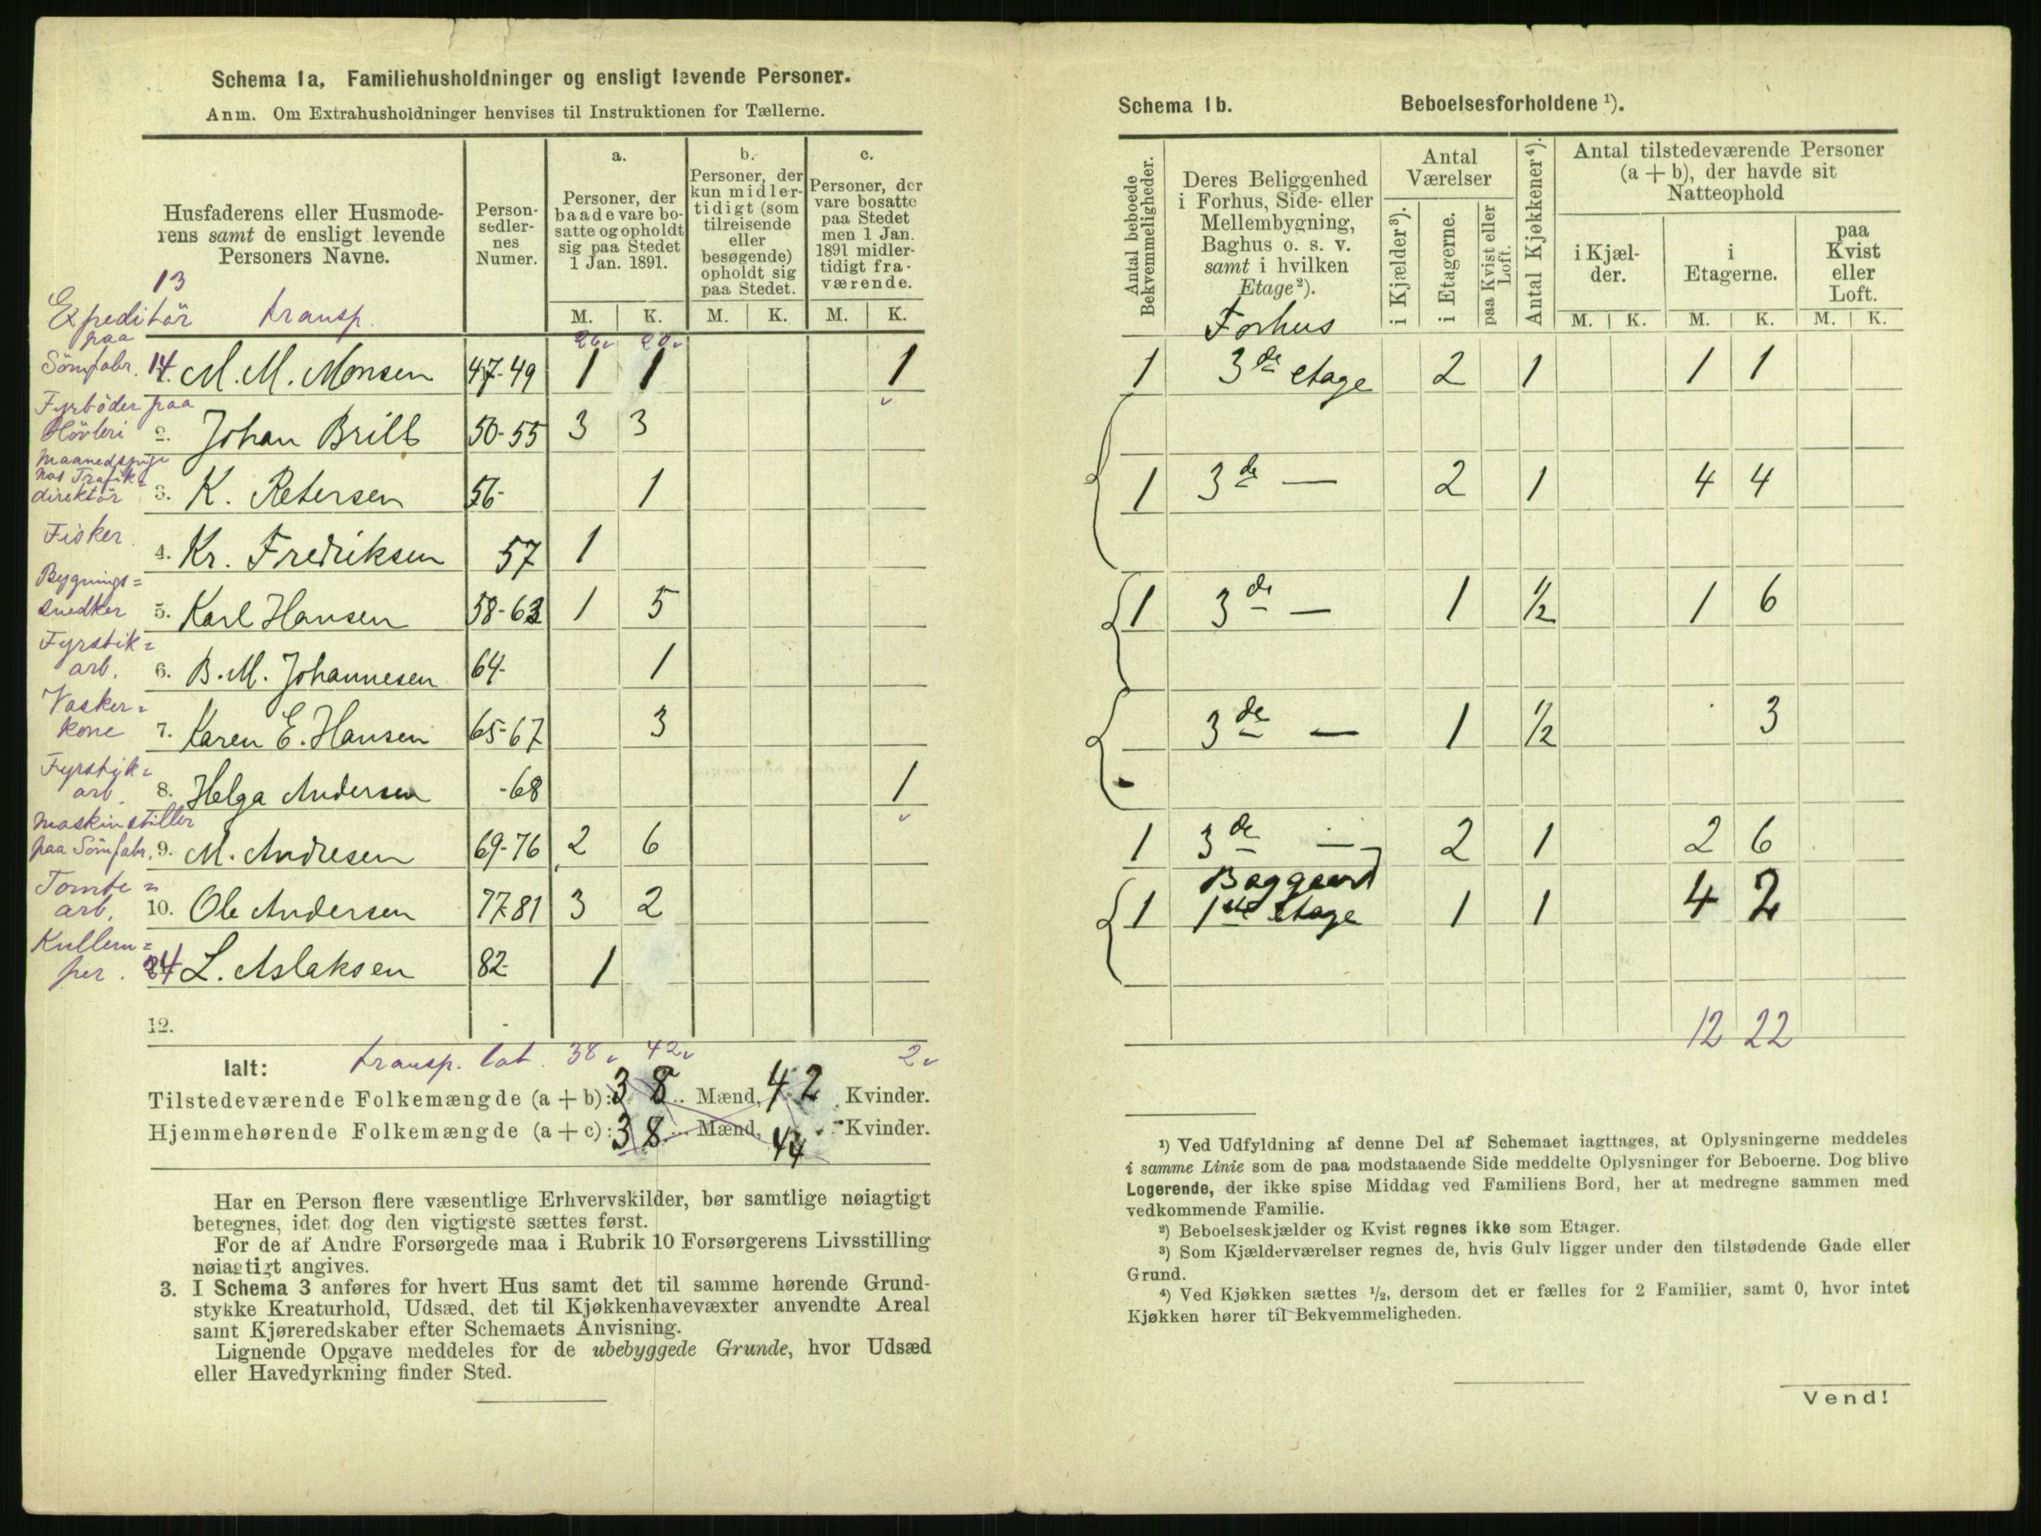 Schema 1a, Familiehusholdninger og ensligt levende Personer.
Anm. Om Extrahusholdninger henvises til Instruktionen for Tællerne.
Husfaderens eller Husmode-
rens samt de ensligt levende
Personers Navne.
Person-
sedler-
nes
Numer.
a.
Personer, der
baade vare bo-
satte og opholdt
sig paa Stedet
1 Jan. 1891.
b.
Personer, der
kun midler-
tidigt (som
tilreisende
eller
besøgende)
opholdt sig
paa Stedet.
c.
Personer, der
vare bosatte
paa Stedet
men 1 Jan.
1891 midler-
tidigt fra-
værende.
M. K. M. K. M. K.
13
transp. 26 20
Expeditör
paa
Sömfabr. 14. M. M. Monsen 47-49 1 1 1
Fyrböder paa
Hövleri 2. Johan Brill 50-55 3 3
Maanedspige
hos Trafik=
direktör 3. K. Petersen 56- 1
Fisker 4. Kr. Fredriksen 57 1
Bygnings=
snedker 5. Karl Hansen 58-63 1 5
Fyrstik=
arb. 6. B. M. Johannesen 64- 1
Vasker=
kone 7. Karen E. Hansen 65-67 3
Fyrstik=
arb. 8. Helga Andersen -68 1
Maskinstiller
paa Sömfabr. 9. M. Andresen 69-76 2 6
Tomte=
arb. 10. Ole Andersen 77-81 3 2
Kullem=
per. 24 L. Aslaksen 82- 1
12.
Ialt: transp. lat. 38 42 2
Tilstedeværende Folkemængde (a + b): 38 Mænd, 42 Kvinder.
Hjemmehørende Folkemængde (a + c): 38 Mænd, 44 Kvinder.
Har en Person flere væsentlige Erhvervskilder, bør samtlige nøiagtigt
betegnes, idet dog den vigtigste sættes først.
For de af Andre Forsørgede maa i Rubrik 10 Forsørgerens Livsstilling
nøiagtigt angives.
3. I Schema 3 anføres for hvert Hus samt det til samme hørende Grund-
stykke Kreaturhold, Udsæd, det til Kjøkkenhavevæxter anvendte Areal
samt Kjøreredskaber efter Schemaets Anvisning.
Lignende Opgave meddeles for de ubebyggede Grunde, hvor Udsæd
eller Havedyrkning finder Sted.
Schema 1b. Beboelsesforholdene ¹).
Antal beboede
Bekvemmeligheder.
Deres Beliggenhed
i Forhus, Side- eller
Mellembygning,
Baghus o. s. v.
samt i hvilken
Etage²).
Antal
Værelser
i Kjælder³).
i Etagerne.
paa Kvist eller
Loft.
Antal Kjøkkener⁴).
Antal tilstedeværende Personer
(a + b), der havde sit
Natteophold
i Kjæl-
der.
i
Etagerne.
paa
Kvist
eller
Loft.
M. K. M. K. M. K.
Forhus
1 3de etage 2 1 1 1
1 3de — 2 1 4 4
1 3de — 1 1/2 1 6
3de — 1 1/2 3
1 3de — 2 1 2 6
Baggaard
1 1ste etage 1 1 4 2
12 22
¹) Ved Udfyldning af denne Del af Schemaet iagttages, at Oplysningerne meddeles
i samme Linie som de paa modstaaende Side meddelte Oplysninger for Beboerne. Dog blive
Logerende, der ikke spise Middag ved Familiens Bord, her at medregne sammen med
vedkommende Familie.
²) Beboelseskjælder og Kvist regnes ikke som Etager.
³) Som Kjælderværelser regnes de, hvis Gulv ligger under den tilstødende Gade eller
Grund.
⁴) Ved Kjøkken sættes ½, dersom det er fælles for 2 Familier, samt 0, hvor intet
Kjøkken hører til Bekvemmeligheden.
Vend!